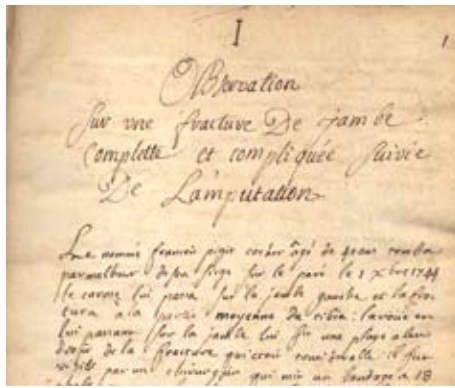 I
1
Observation
Sur une fracture De jambe
Complette et compliquée Suivie
De L'amputation
nommé françois cocher âgé de 40 ans tomba
par malheur de son siege sur le pavé le 1 xbre 1744
le carosse lui passa sur la jambe gauche et la frac
tura à la partie moyenne du tibia: la roue en
lui passant sur la jambe lui fit une playe
de la fracture qui etoit il fut
par un chirurgien qui mit un bandage à 18